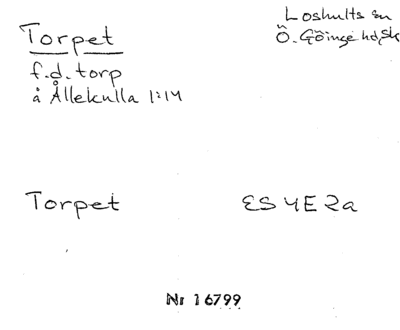 Torpet
Loshults sn
Ö. Göinge hd, Sk
f.d. torp
å Ållekulla 1:14
Torpet
ES 4E2a
Nr 16799